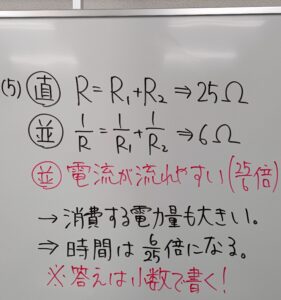 (5) 直 R=R₁+R₂ ⇒ 25Ω
並 1/R=1/R₁+1/R₂ ⇒ 6Ω
並 電流が流れやすい(25/6倍)
→ 消費する電力量も大きい。
⇒ 時間は6/25倍になる。
※答えは小数で書く!